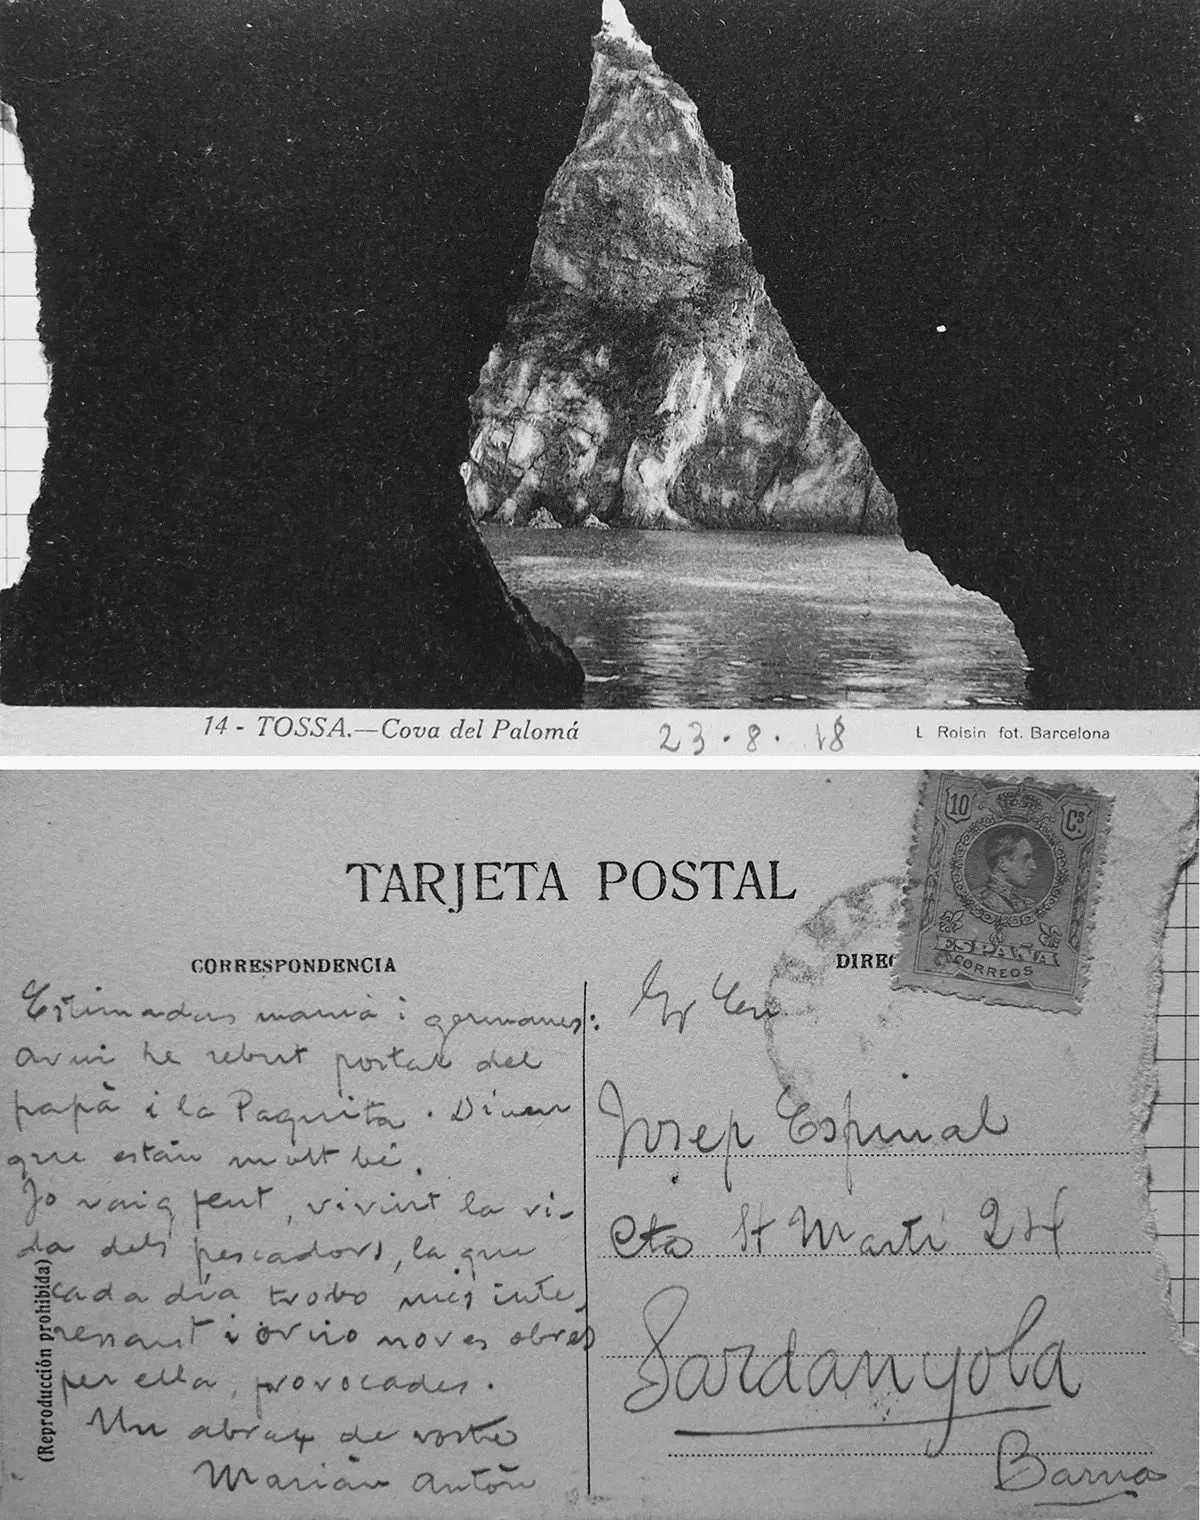 14 - TOSSA.—Cova del Palomá
23 . 8 . 18
L Roisin fot. Barcelona
TARJETA POSTAL
10 Cs
ESPAÑA
CORREOS
CORRESPONDENCIA
DIREC
Estimadas mamá i germanes:
avui he rebut postal del
papà i la Paquita. Diuen
que están molt bé.
Jo vaig fent, vivint la vi-
da dels pescadors, la que
cada día trobo més inte
ressant i crio noves obres
per ella, provocades.
Un abraç de vostre
Marián Antón
(Reproducción prohibida)
Josep Espinal
Cta St Martí 24
Sardanyola
Barna